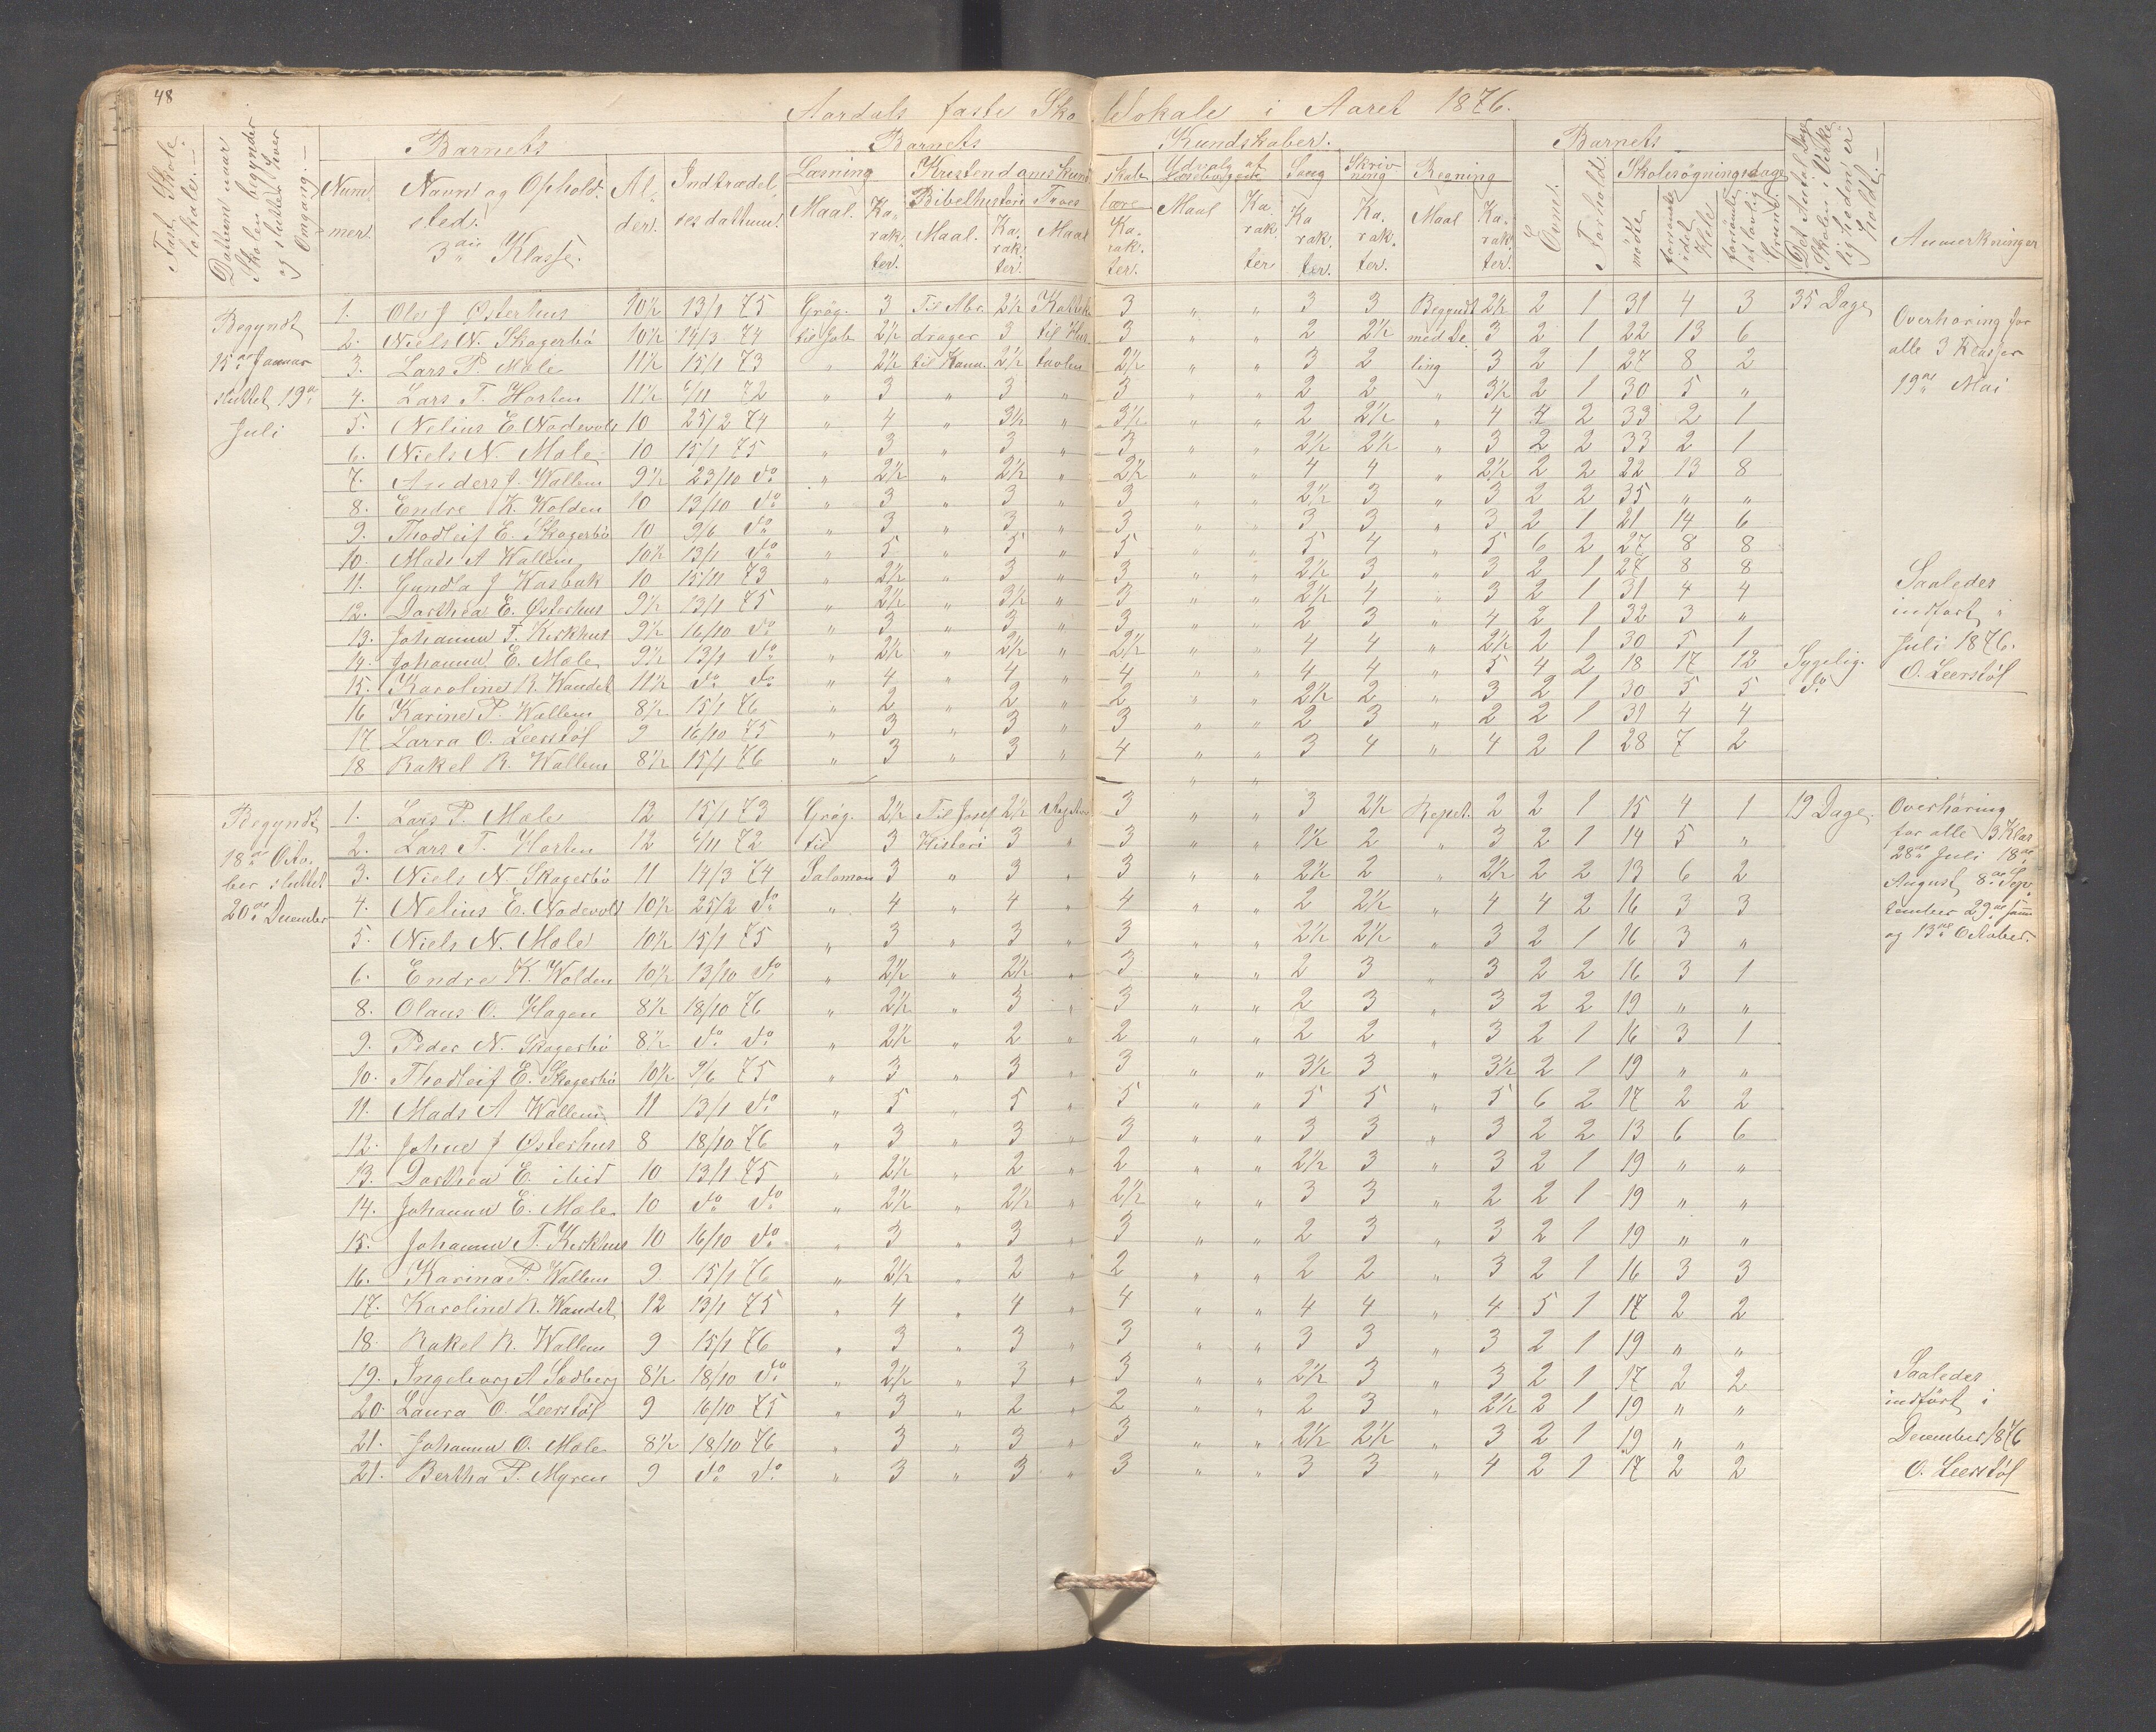 48
Aardals faste Skolelokale i Aaret 1876.
Fast Skole lokale. Datum naar Skolen begynder og slutter hver Omgang. Barnets Barnets Kundskaber. Barnets Det Antal Dage Skolen i Virkeligheden er holdt Anmerkninger
Nummer. Navn og Opholdsted. 3die Klasse. Alder. Indtrædelsesdathum. Læsning Kristendomskundskab Troeslære Udvalg af Læsebogen Sang Skrivning Regning Evne. Forhold. Skolesøgningsdage
Maal. Karakter. Bibelhistorie Maal. Karakter. Maal Karakter. Maal Karakter Karakter. Karakter. Maal Karakter. mødte forsømte i det Hele forsømte af lovlig Grund
Begyndt 15de Januar sluttet 19de Juli
1. Ole J Østerhus 10½ 13/1 75 Grøg. 3 Til Abr. 2½ 3 " " 3 3 Begyndt 2½ 2 1 31 4 3 35 Dage
2. Niels N. Skogerbö 10½ 14/3 74 til Job 2½ drager 3 til Hus 3 " " 2 2½ med De 3 2 1 22 13 6
3. Lars P. Mæle 11½ 15/1 73 " 2½ til Kana. 2½ tavlen 2½ " " 3 2 ling 3 2 1 27 8 2
4. Lars T. Horten 11½ 6/11 72 " 3 " 3 " 3 " " 2 2 " 3½ 2 1 30 5 "
5. Nelius E. Nodevolt 10 25/2 74 " 4 " 3½ " 3½ " " 2 2½ " 4 4 2 33 2 1
6. Niels N. Mæle 10 15/1 75 " 3 " 3 " 3 " " 2½ 2½ " 3 2 2 33 2 1
7. Anders J. Wallem 9½ 23/10 do " 2½ " 2½ " 2½ " " 4 4 " 2½ 2 2 22 13 8
8. Endre K. Wolden 10 13/10 do " 3 " 3 " 3 " " 2½ 3 " 3 2 2 35 " "
9. Thodleif E. Skogerbö 10 9/6 do " 3 " 3 " 3 " " 3 3 " 3 2 1 21 14 6
10. Mads A Wallem 10½ 13/1 do " 5 " 5 " 5 " " 5 4 " 5 6 2 27 8 8
11. Gundla J Kasbak 10 15/11 73 " 2½ " 3 " 3 " " 2½ 3 " 3 2 1 27 8 8
12. Dorthea E. Østerhus 9½ 13/1 75 " 2½ " 3½ " 3 " " 2½ 4 " 3 2 1 31 4 4
13. Johanna T. Kirkhus 9½ 16/10 do " 3 " 3 " 3 " " 2 3 " 4 2 1 32 3 "
14. Johanna E. Mæle 9½ 13/1 do " 2½ " 2½ " 2½ " " 4 4 " 2½ 2 1 30 5 1
15. Karoline R. Waudet 11½ do do " 4 " 4 " 4 " " 4 4 " 5 4 2 18 17 12 Sygelig.
16 Karine P. Wallem 8½ 15/1 76 " 2 " 2 " 2 " " 2½ 2 " 3 2 1 30 5 5 do
17 Larra O. Leerstøl 9 16/10 75 " 3 " 3 " 3 " " 2 3 " 2 2 1 31 4 4
18 Rakel R. Wallem 8½ 15/1 76 " 3 " 3 " 4 " " 3 4 " 4 2 1 28 7 2
Overhøring for
alle 3 Klasser
19de Mai
Saaledes
indført i
Juli 1876.
O. Leerstøl
Begyndt 18de October sluttet 20de December
1. Lars P. Mæle 12 15/1 73 Grøg. 2½ Til Josef 2½ 3 " " 3 2½ Repet. 2 2 1 15 4 1 19 Dage.
2. Lars T. Horten 12 6/11 72 til 3 Histori 3 " 3 " " 1½ 2 " 3 2 1 14 5 "
3. Niels N. Skogerbö 11 14/3 74 Salomon 3 " 3 " 3 " " 2½ 2 " 2½ 2 2 13 6 2
4. Nelius E. Nodevolt 10½ 25/2 do " 4 " 4 " 4 " " 2 2½ " 4 4 2 16 3 3
5. Niels N. Mæle 10½ 15/1 75 " 3 " 3 " 3 " " 2½ 2½ " 3 2 1 16 3 "
6. Endre K. Wolden 10½ 13/10 do " 2½ " 2½ " 3 " " 2 3 " 3 2 2 16 3 1
8. Olaus O. Hagen 8½ 18/10 76 " 2½ " 3 " 3 " " 2 3 " 3 2 2 19 " "
9. Peder N. Skogerbö 8½ do do " 2½ " 2 " 2 " " 2 2 " 3 2 1 16 3 1
10. Thodleif E. Skogerbö 10½ 9/6 75 " 3 " 3 " 3 " " 3½ 3 " 3½ 2 1 19 " "
11. Mads A Wallem 11 13/1 do " 5 " 5 " 5 " " 5 5 " 5 6 2 17 2 2
12. Johne J Østerhus 8 18/10 76 " 3 " 3 " 3 " " 3 3 " 3 2 2 13 6 6
13. Dorthea E. ibid 10 13/1 75 " 2½ " 2 " 2 " " 2½ 3 " 3 2 1 19 " "
14. Johanna E. Mæle 10 do do " 2½ " 2½ " 2½ " " 3 3 " 2 2 1 19 " "
15. Johanna T. Kirkhus 10 16/10 do " 3 " 3 " 3 " " 2 3 " 3 2 1 19 " "
16. Karina P. Wallem 9 15/1 76 " 2½ " 2 " 2 " " 2 2 " 3 2 1 16 3 3
17. Karoline R. Waudet 12 13/1 75 " 4 " 4 " 4 " " 4 4 " 4 5 1 17 2 2
18. Rakel R. Wallem 9 15/1 76 " 3 " 3 " 3 " " 3 3 " 3 2 1 19 " "
19. Ingeborg A Sedberg 8½ 18/10 do " 2½ " 3 " 3 " " 2½ 3 " 3 2 1 17 2 2
20. Laura O. Leerstøl 9 16/10 75 " 3 " 2 " 2 " " 2 3 " 2½ 2 1 19 " "
21. Johanna O. Mæle 8½ 18/10 76 " 3 " 3 " 3 " " 2½ 2½ " 3 2 1 19 " "
21. Bertha P. Myren 9 do do " 3 " 3 " 3 " " 3 3 " 4 2 1 17 2 2
Overhöring
for alle 3 Klas
28de Juli 18de
August, 8de Sep.
tember 29de samm
og 13de October.
Saaledes
indført i
December 1876
O. Leerstøl